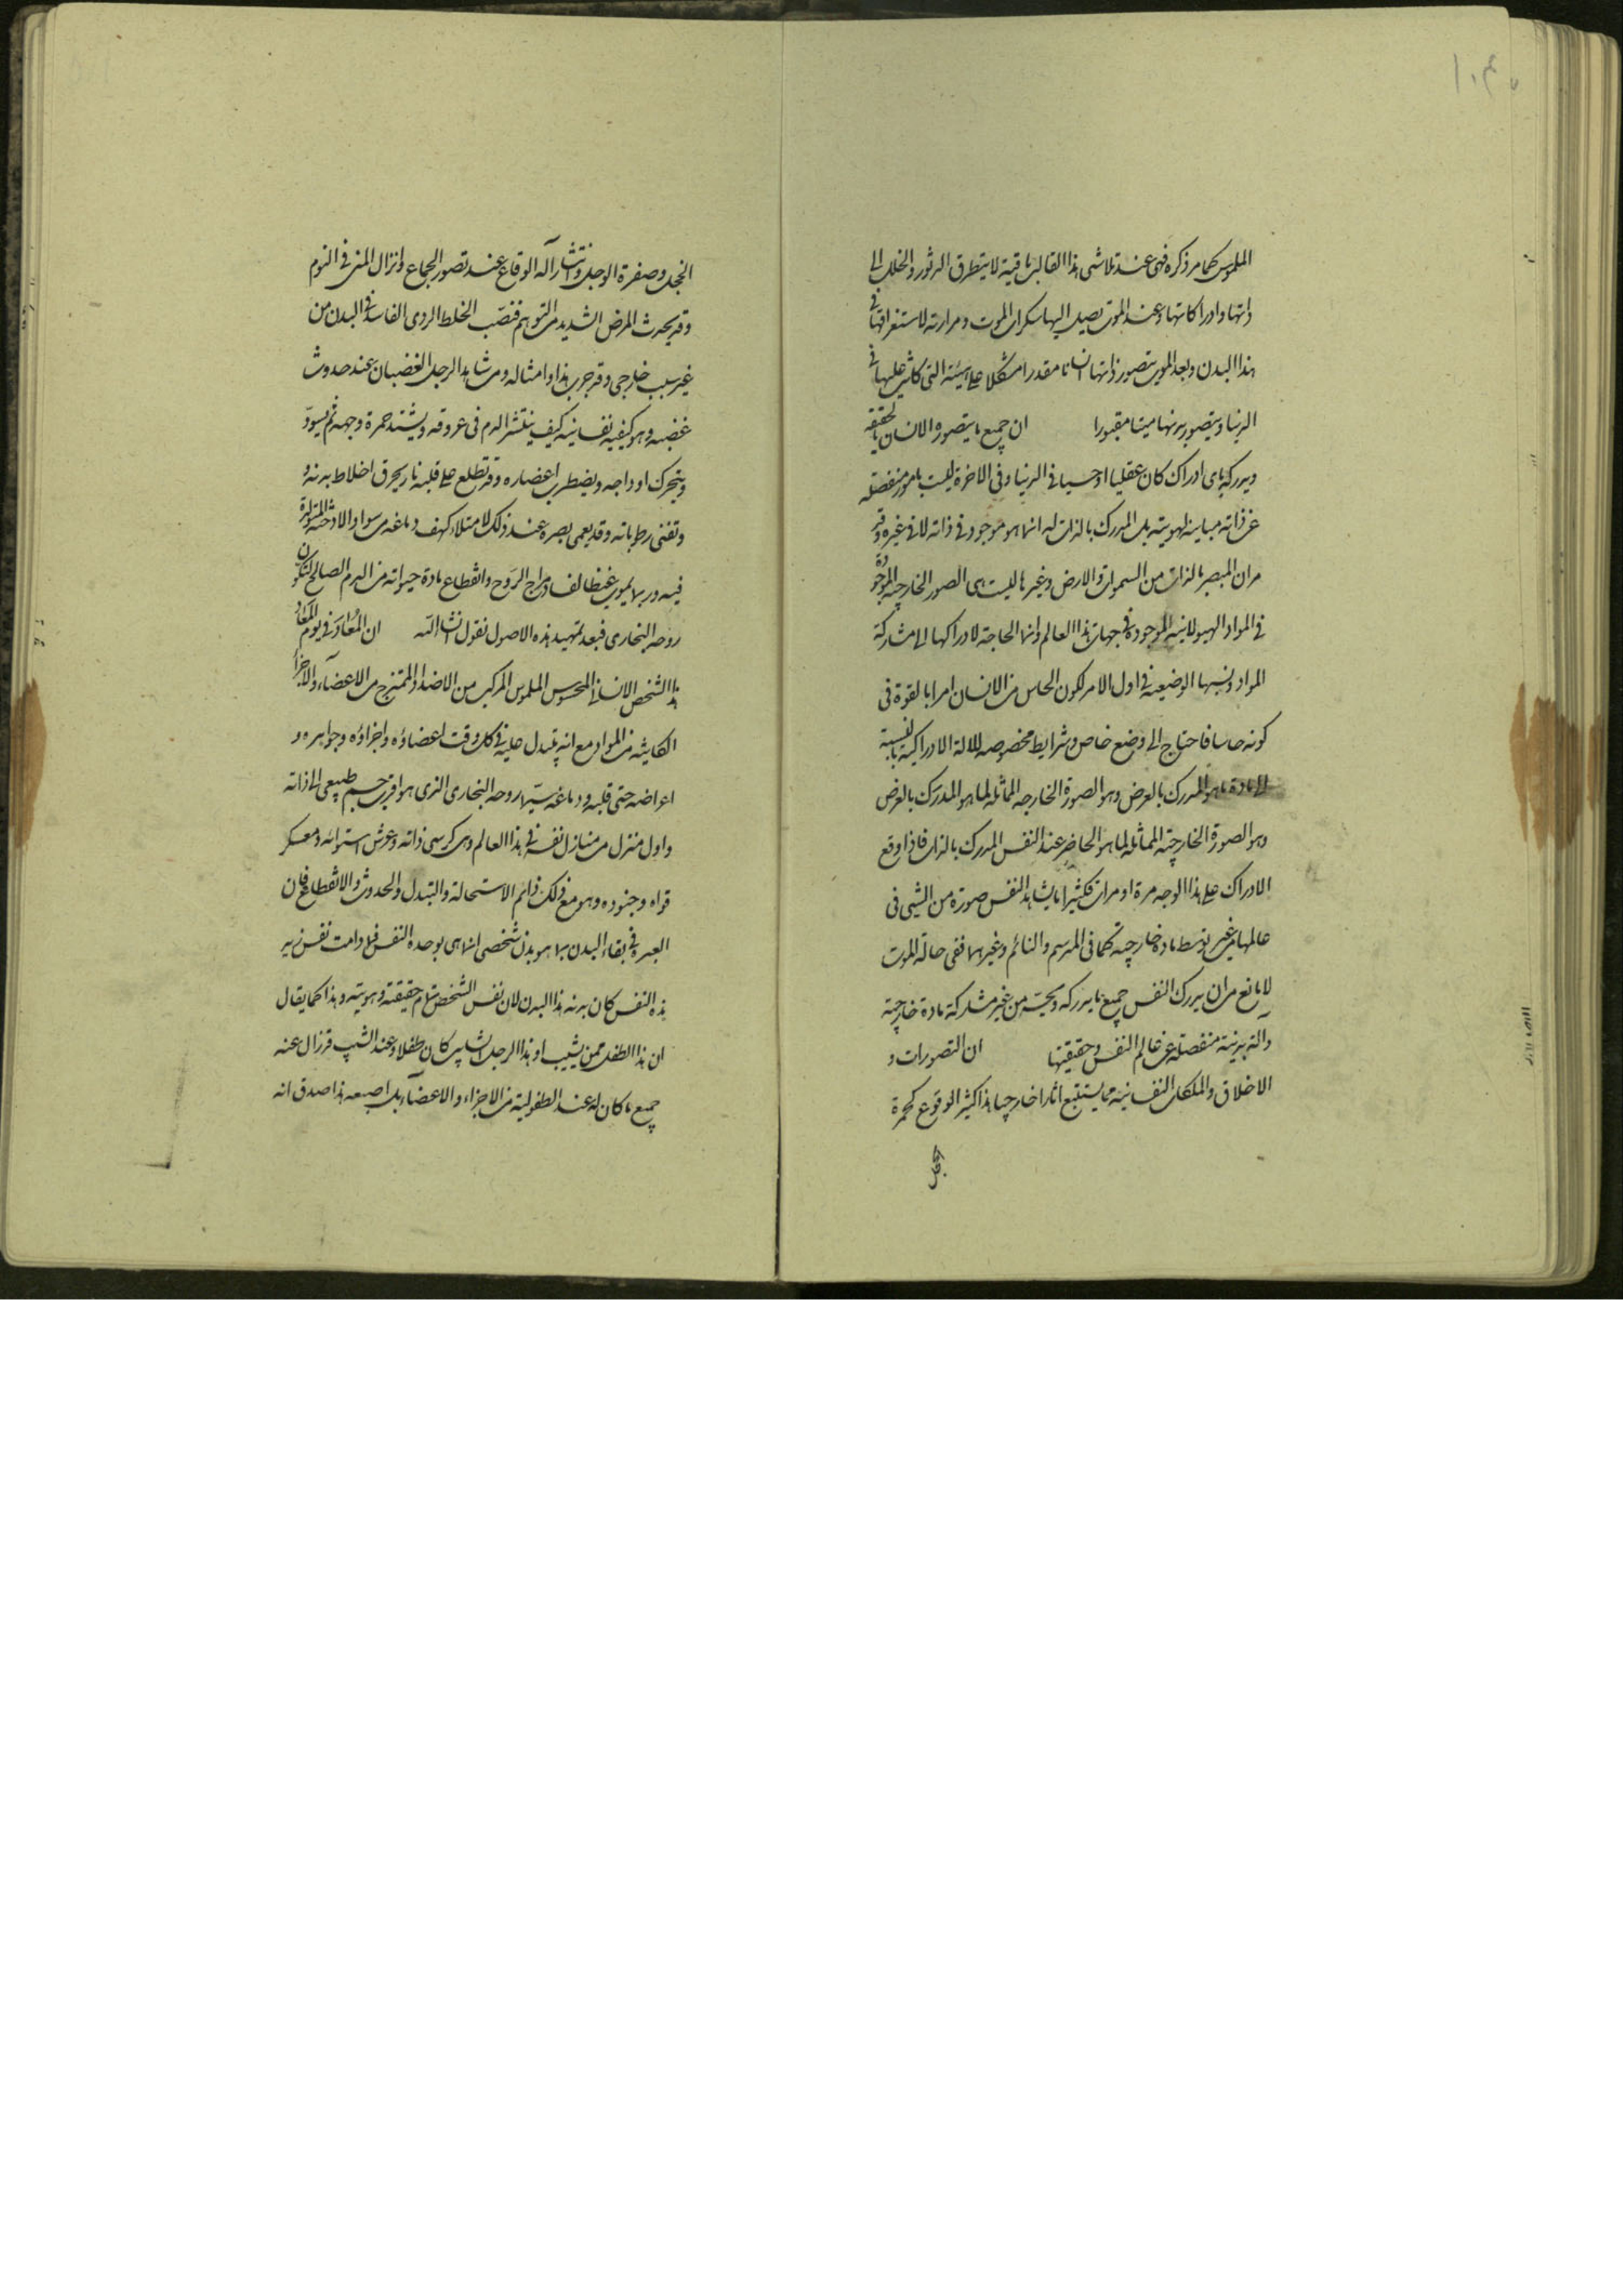 الملموس كما مر ذكره فهى عند تلاشى هذا القالب باقية لا يتطرق الدثور والخلل الى
ذاتها وادراكاتها وعند الموت يصل اليها سكرات الموت ومرارته لاستغراقها فى
هذا البدن وبعد الموت يتصور ذاتها انسانا مقدرا مشكلا على الهيئة التى كانت عليها فى
الدنيا ويتصور بدنها ميتا مقبورا ان جميع ما يتصوره الانسان بالحقيقة
ويدركه باى ادراك كان عقليا او حسيا فى الدنيا وفى الاخرة ليست بامور منفصلة
عن ذاته مباينة لهويته بل المدرك بالذات له انما هو موجود فى ذاته لا فى غيره وقد
مر ان المبصر بالذات من السموات والارض وغيرها ليست هى الصور الخارجية الموجودة
فى المواد الهيولانية الموجودة فى جهات هذا العالم وانما الحاجة لادراكها الى مشاركة
المواد ونسبها الوضعية فى اول الامر لكون الحاس من الانسان امرا بالقوة فى
كونه حاسا فاحتاج الى وضع خاص وشرايط مخصوصه للالة الادراكية بالنسبة
الى مادة ما هو المدرك بالعرض وهو الصورة الخارجه المماثلة لما هو المدرك بالعرض
وهو الصورة الخارجية المماثلة لما هو الحاضر عند النفس المدرك بالذات فاذا وقع
الادراك على هذا الوجه مرة او مرات فكثيرا ما يشاهد النفس صورة من الشيى فى
عالمها من غير توسط مادة خارجية كما فى المبرسم والنائم وغيرهما ففى حالة الموت
لا مانع من ان يدرك النفس جميع ما يدركه ويحسه من غير مشاركة مادة خارجية
والة بدنية منفصلة عن عالم النفس وحقيقتها ان التصورات و
الاخلاق والملكات النفسانية مما يستتبع اثارا خارجيا هذا كثير الوقوع كحمرة
الخجل
الخجل وصفرة الوجل وانتشار آلة الوقاع عند تصور الجماع وانزال المنى فى النوم
وقد يحدث المرض الشديد من التوهم فتصب الخلط الردى الفاسد فى البدن من
غير سبب خارجى وقد جرب هذا وامثاله ومن شاهد الرجل الغضبان عند حدوث
غضبه وهو كيفية نفسانية كيف ينتشر الدم فى عروقه ويشتد حمرة وجهه ثم يسود
ويتحرك اوداجه ويضطرب اعضاءه وقد تطلع على قلبه نار يحرق اخلاط بدنه و
وتفنى رطوباته وقد يعمى بصره عند ذلك لامتلاء كهف دماغه من سواد الادخنة المتولدة
فيه وربما يموت غيظا لفساد مزاج الروح وانقطاع مادة حيواته من الدم الصالح لتكون
روحه البخارى فبعد تمهيد هذه الاصول نقول انشاء الله ان المعاد فى يوم المعاد
هذا الشخص الانسانى المحسوس الملموس المركب من الاضداد الممتزج من الاعضاء والاجزاء
الكائنة من المواد مع انه يتبدل عليه فى كل وقت اعضاؤه واجزاؤه وجواهره و
اعراضه حتى قلبه ودماغه سيما روحه البخارى الذى هو اقرب جسم طبيعى الى ذاته
واول منزل من منازل نفسه فى هذا العالم وهى كرسى ذاته وعرش استوائه ومعسكر
قواه وجنوده وهو مع ذلك دائم الاستحالة والتبدل والحدوث والانقطاع فان
العبرة فى بقاء البدن بما هو بدن شخصى انما هى بوحدة النفس فما دامت نفس زيد
هذه النفس كان بدنه هذا البدن لان نفس الشخص تمام حقيقته وهويته وهذا كما يقال
ان هذا الطفل ممن يشيب او هذا الرجل الشايب كان طفلا وعند الشيب قد زال عنه
جميع ما كان له عند الطفولية من الاجزاء والاعضاء بل اصبعه هذا صدق انه